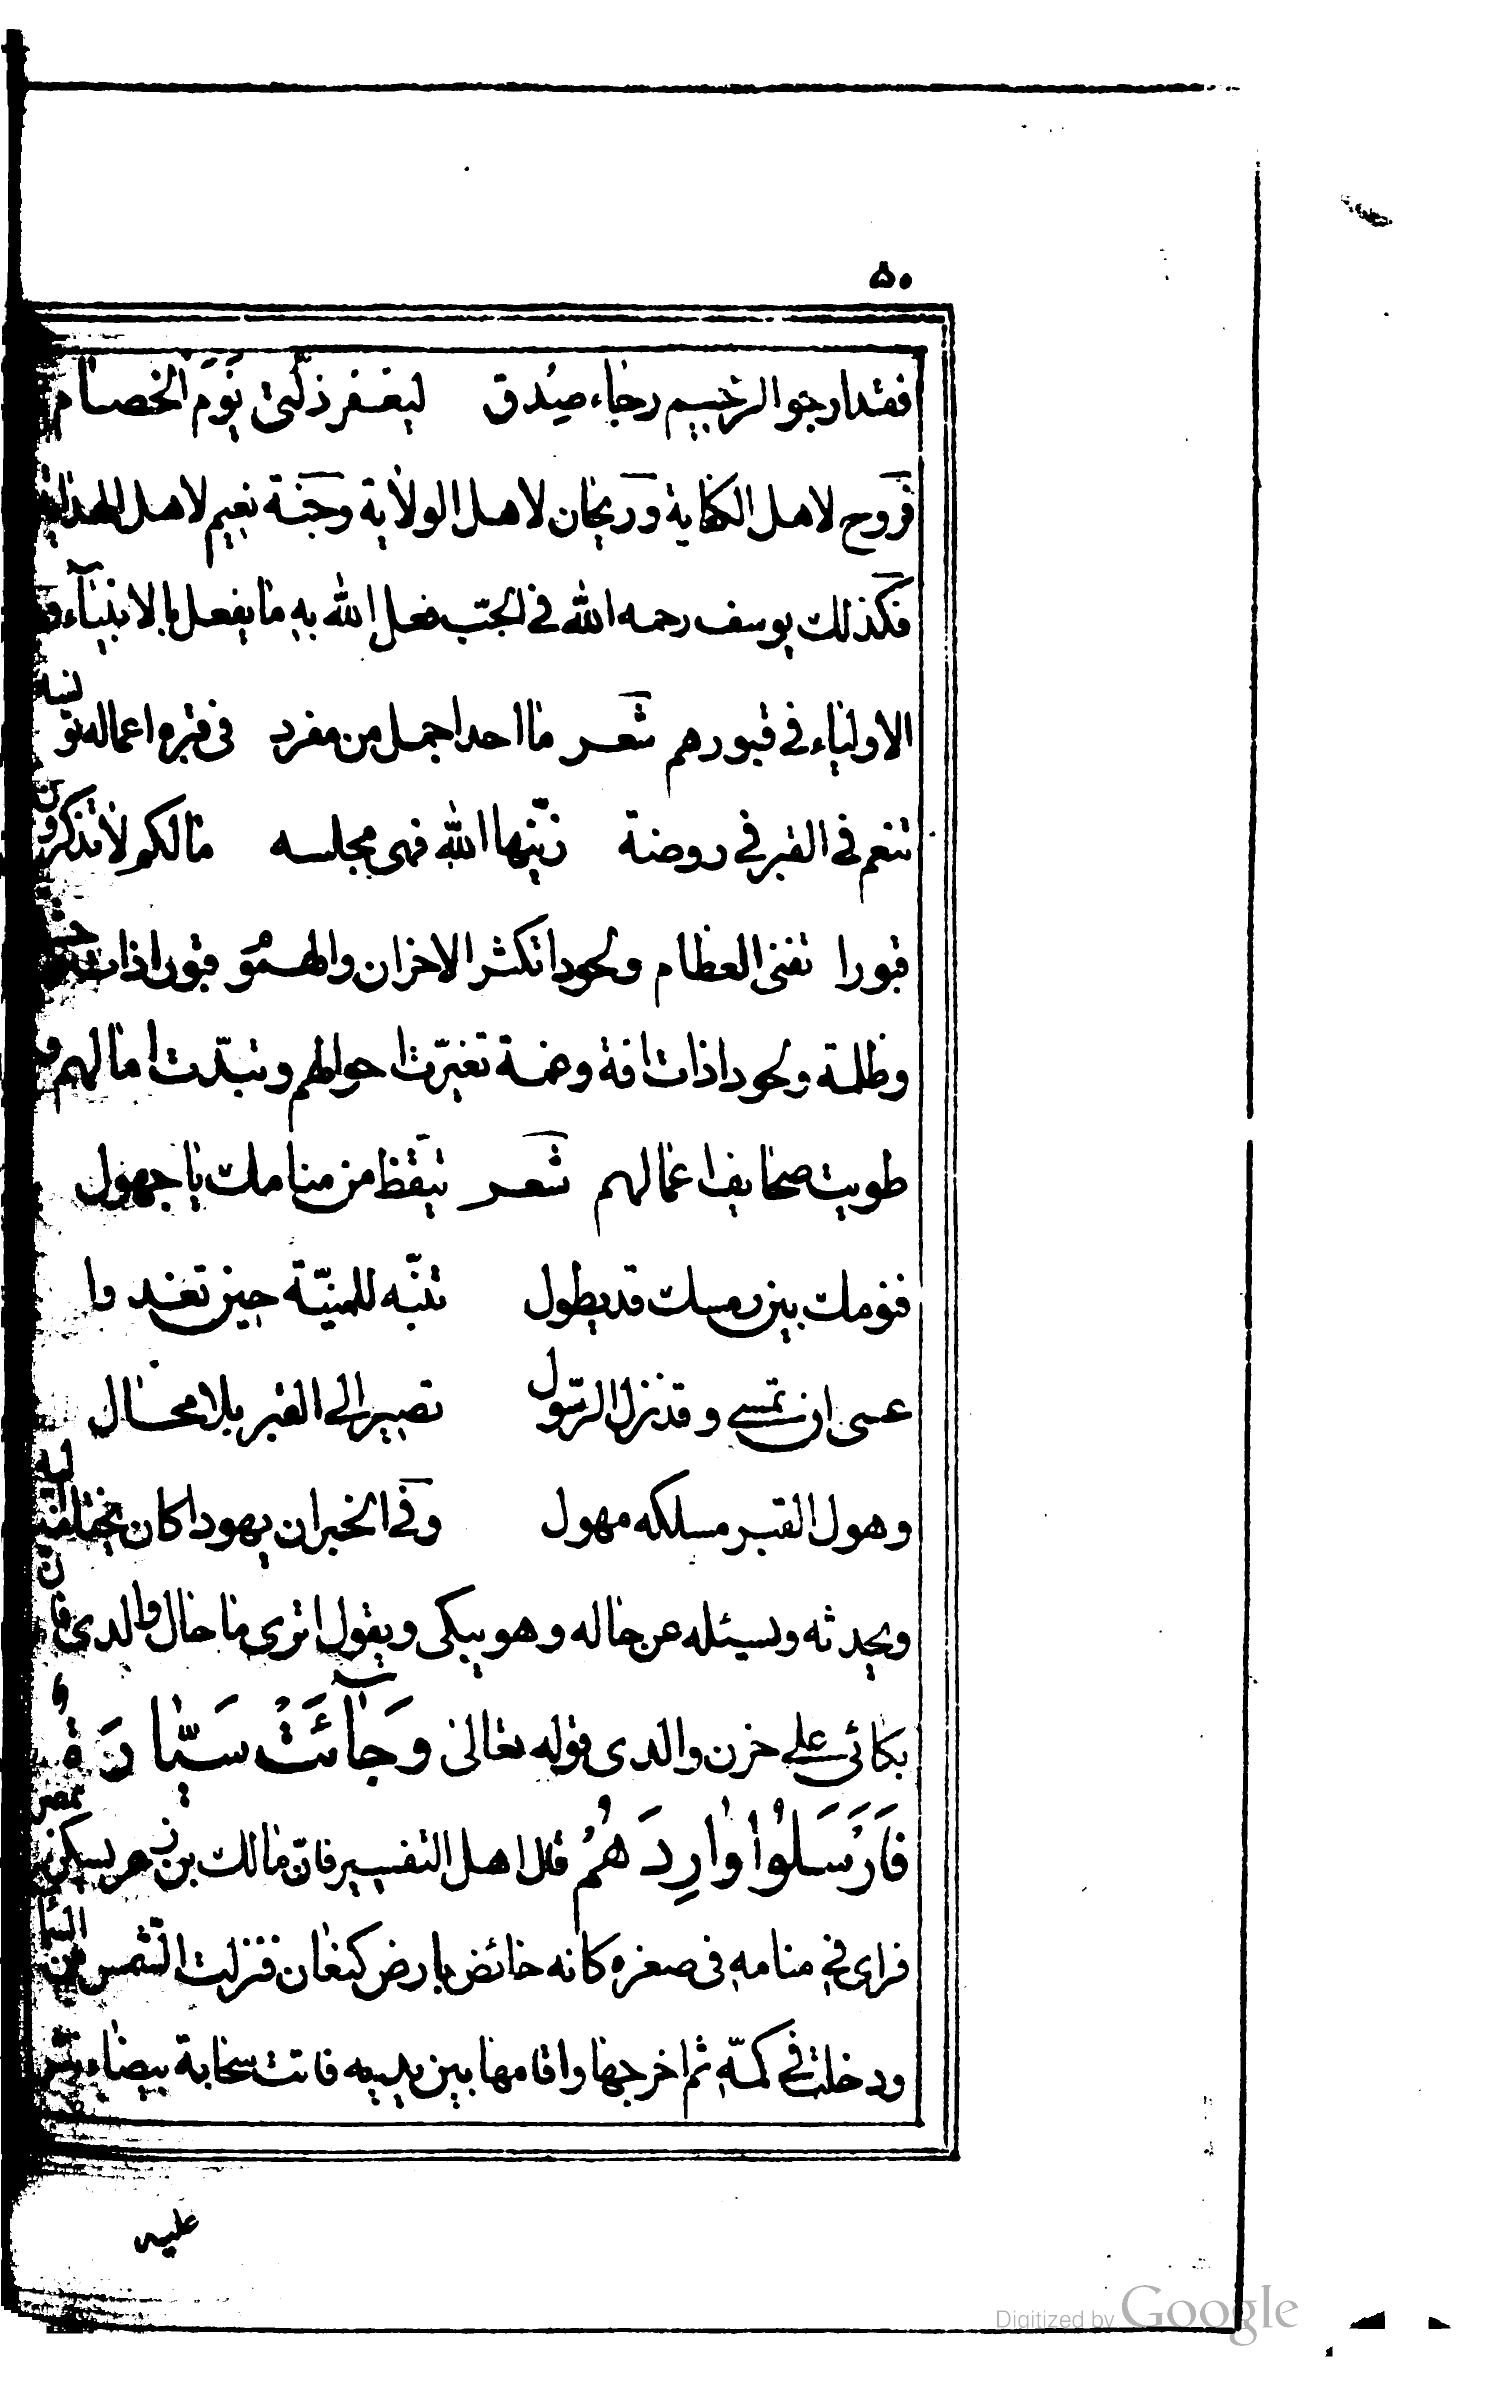 ۵۰
فقد ارجو الرخيم رجاء صدق ليغفر ذلتى يوم الخصام
فروح لاهل الكفاية وريحان لاهل الولاية وجنة نعيم لاهل الهداية
فكذلك يوسف رحمه الله في الجبّ فعل الله به ما يفعل بالانبياء و
الاولياء في قبورهم شعر ما احد اجمل من مفرد في قبره اعماله تونسه
تنعم في القبر في روضة زيّنها الله فهى مجلسه ما لكم لا تذكرون
قبورا تفنى العظام ولحودا تكثر الاحزان والهموم قبورا ذات
وظلمة ولحودا ذات افة وغمة تغيّرت احوالهم وتبدّت امالهم و
طويت صحايف اعمالهم شعر تيقظ من منامك يا جهول
فنومك بين رمسك قد يطول تنبّه للمنيّة حين تغدوا
عسى ان تمسي وقد نزل الرّسول تصير الى القبر بلا محال
وهول القبر مسلكه مهول وفي الخبر ان يهودا كان يختلف اليه
ويحدثه ويسئله عن حاله وهو يبكى ويقول اترى ما حال والدى فان
بكائى على حزن والدى قوله تعالى وَجَآئَتْ سَيَّارَةٌ
فَاَرْسَلُوْا وٰارِدَهُمْ قال اهل التفسير فانّ مالك بن زعر يسكن بمصر
فراى في منامه في صغره كانه خائض بارض كنعان فنزلت الشّمس من السماء
ودخلت في كمّه ثم اخرجها واقامها بين يديه فاتت سحابة بيضاء تنثر
عليه
Digitized by Google